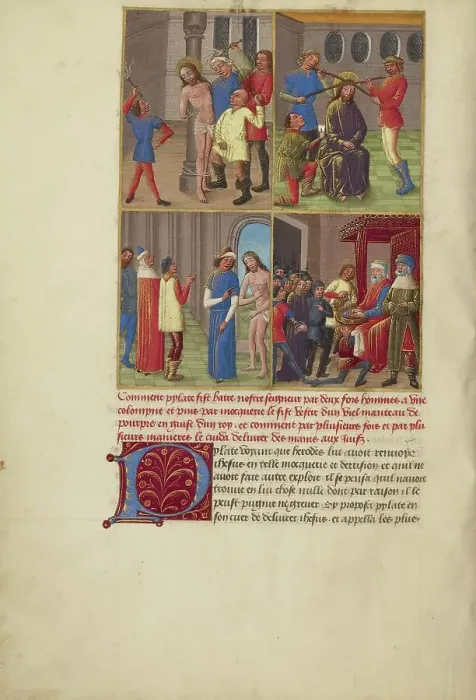 Comment pylate fist batre nostre seigneur par deux fors hommes a une
colompne et puis par mocquerie le fist vestir dun viel manteau de
pourpre en guise dun roy. et comment par plusieurs fois et par plu
sieurs manieres le cuida delivrer des mains aux juifs.
Pylate voyant que herodes lui avoit renvoye
ihesus en telle mocquerie et derision et quil ne
avoit fait autre exploit. il se pensa quil navoit
trouve en lui chose nulle dont par raison il le
peust pugnir ne grever. Sy proposa pylate en
son cuer de delivrer ihesus. et appella les plus